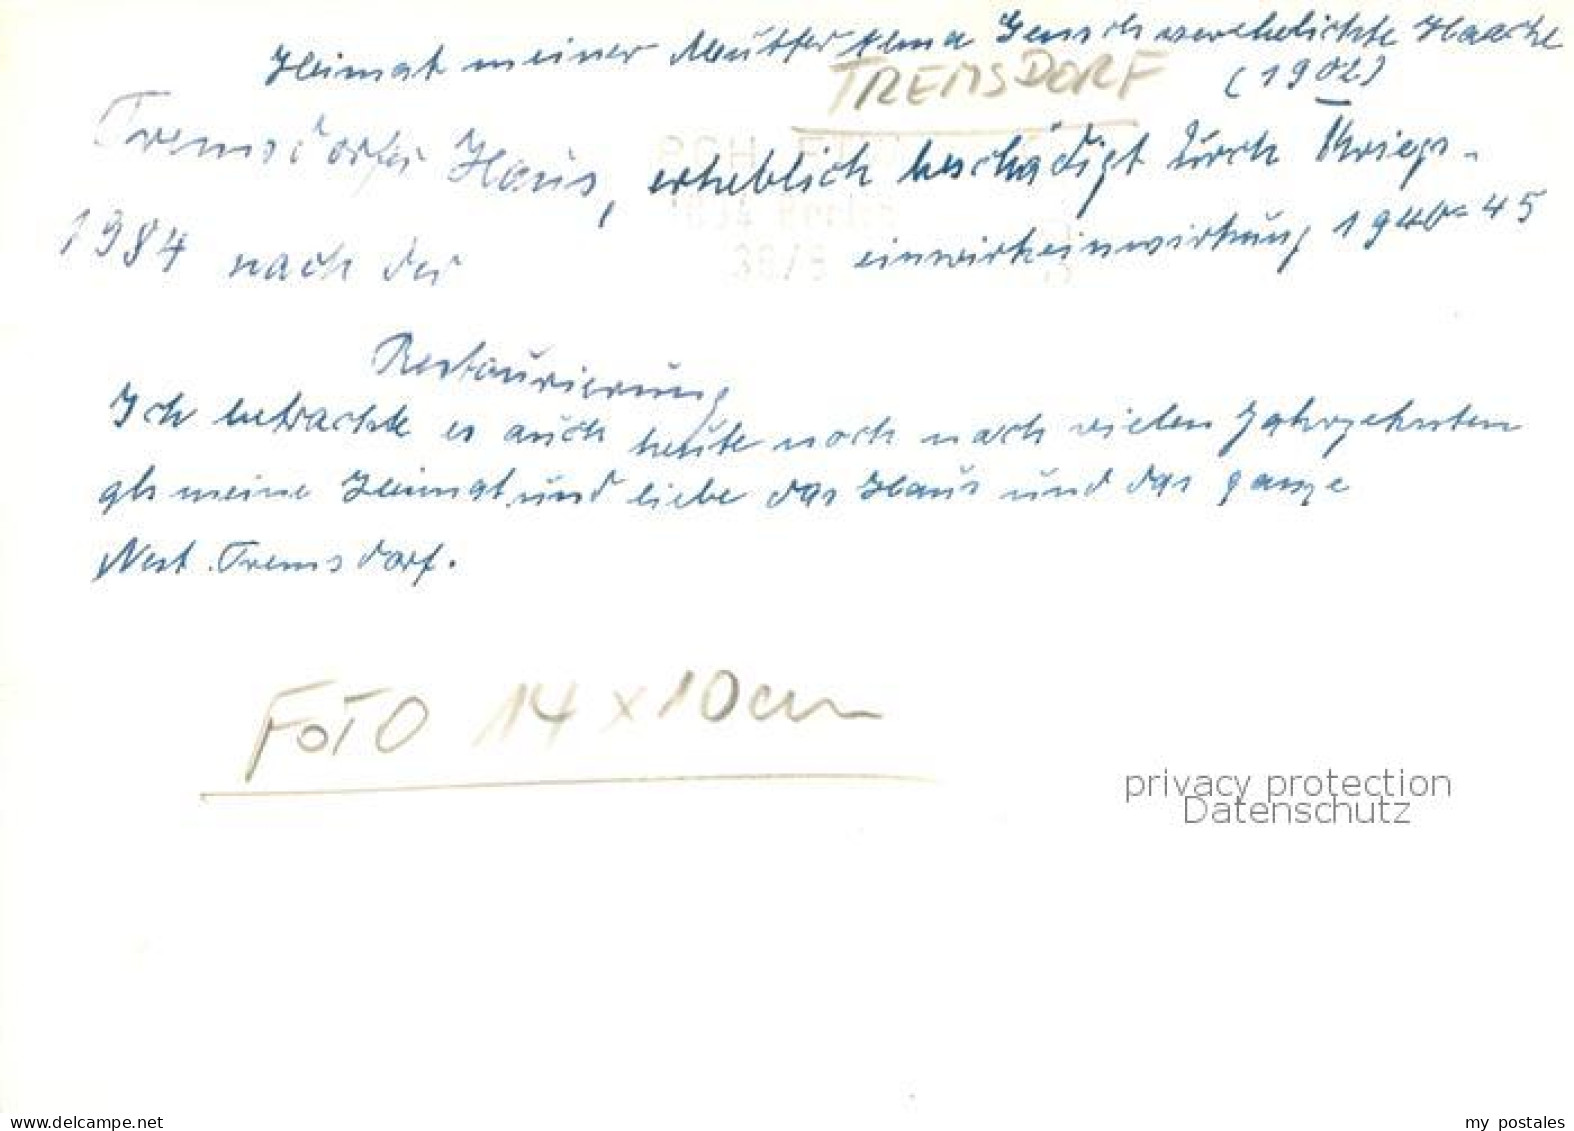 Heimat meiner Mutter Alma Jensch verehelichte Haacke
TREMSDORF (1902)
Tremsdorfer Haus, erheblich beschädigt durch Kriegs-
1984 nach der einwirkeinwirkung 1945
Restaurierung
Ich betrachte es auch heute noch nach vielen Jahrzehnten
als meine Heimat und liebe das Haus und das ganze
Nest Tremsdorf.
FOTO 14 x 10 cm
privacy protection
Datenschutz
www.delcampe.net
my_postales